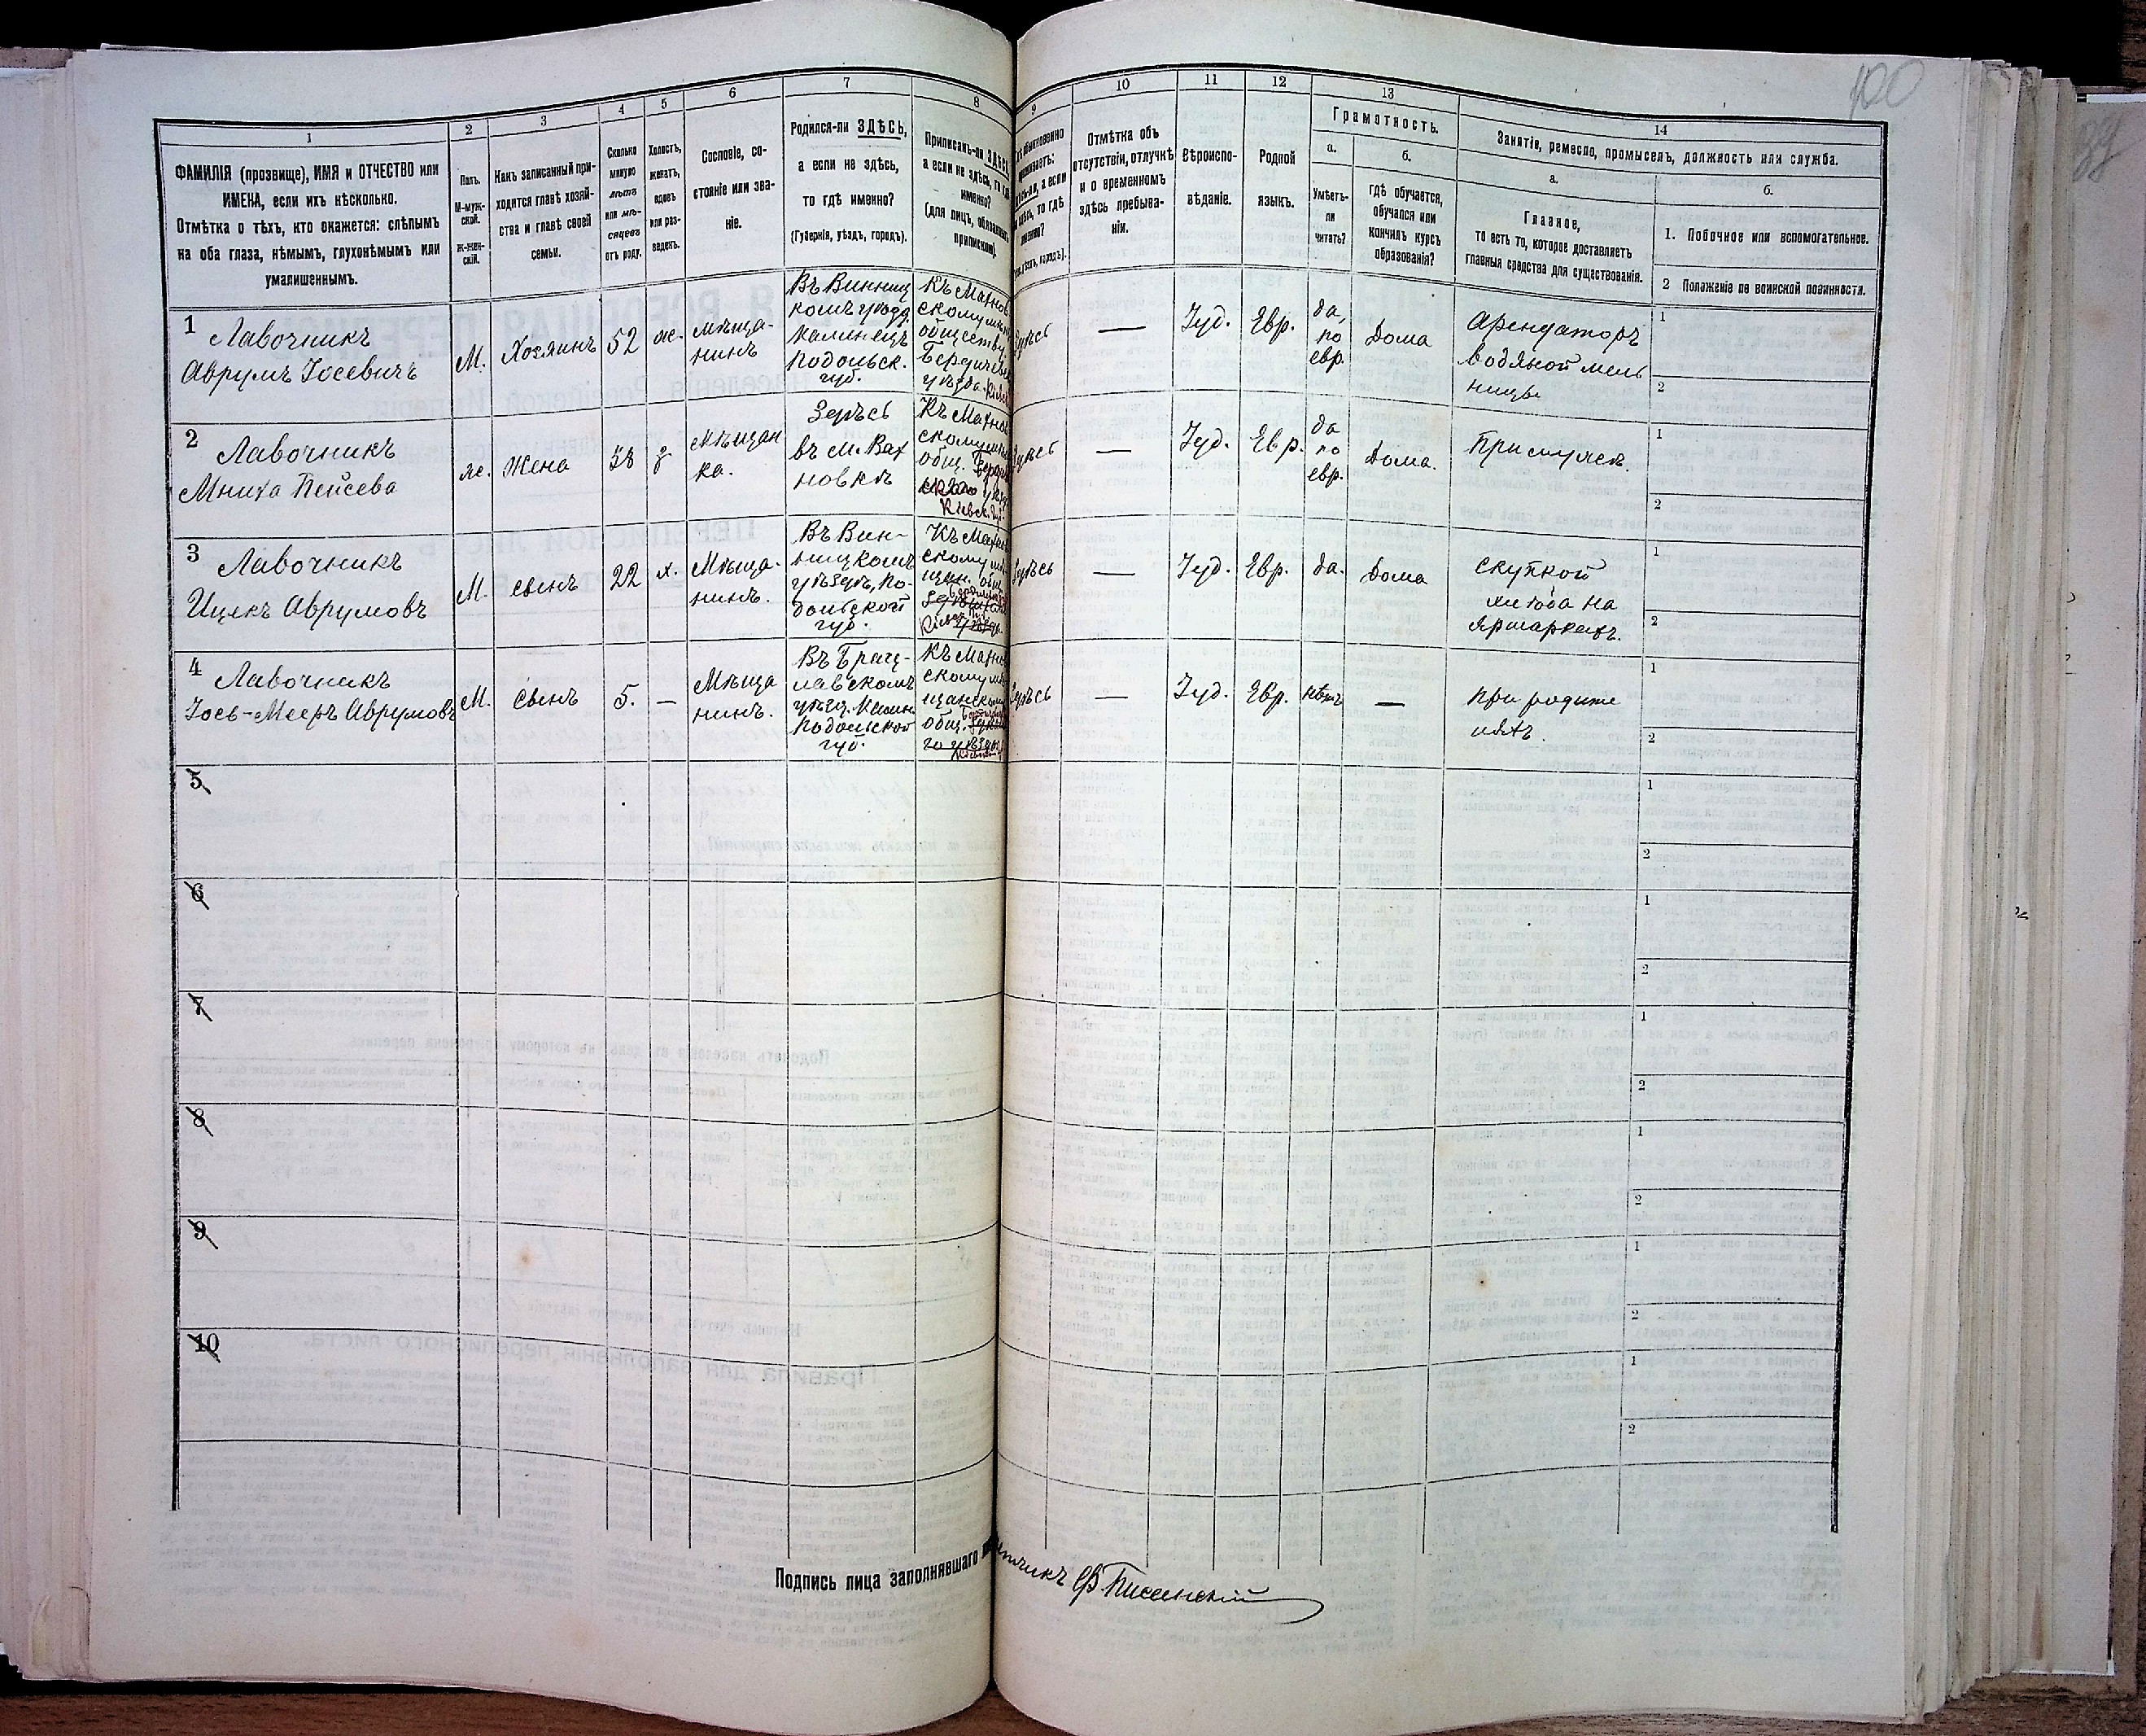 100
1
2
3
4
5
6
7
8
9
10
11
12
13
14
ФАМИЛІЯ (прозвище), ИМЯ и ОТЧЕСТВО или
ИМЕНА, если ихъ нѣсколько.
Отмѣтка о тѣхъ, кто окажется: слѣпымъ
на оба глаза, нѣмымъ, глухонѣмымъ или
умалишеннымъ.
Полъ.
М-муж-
ской.
Ж-жен-
скій.
Какъ записанный при-
ходится главѣ хозяй-
ства и главѣ своей
семьи.
Сколько
минуло
лѣтъ
или мѣ-
сяцевъ
отъ роду.
Холостъ,
женатъ,
вдовъ
или раз-
веденъ.
Сословіе, со-
стояніе или зва-
ніе.
Родился-ли ЗДѢСЬ,
а если не здѣсь,
то гдѣ именно?
(Губернія, уѣздъ, городъ).
Приписанъ-ли ЗДѢСЬ
а если не здѣсь, то гдѣ
именно?
(для лицъ, обязанныхъ
припиской).
обыкновенно
а если
то гдѣ
Отмѣтка объ
отсутствіи, отлучкѣ
и о временномъ
здѣсь пребыва-
ніи.
Вѣроиспо-
вѣданіе.
Родной
языкъ.
Грамотность.
а.
Умѣетъ-
ли
читать?
б.
гдѣ обучается,
обучался или
кончилъ курсъ
образованія?
Занятіе, ремесло, промыселъ, должность или служба.
а.
Главное,
то есть то, которое доставляетъ
главныя средства для существованія.
б.
1. Побочное или вспомогательное.
2 Положеніе по воинской повинности.
1 Лавочникъ
Аврумъ Іосевичъ
М.
Хозяинъ
52
ж.
мѣща-
нинъ
Въ Винниц
комъ уѣзд.
Каменецъ
Подольск.
губ.
Къ Махнов
скому
обществу
Бердичев
уѣзда.
Здѣсь
—
Іуд.
Евр.
да,
по
евр.
Дома
Арендаторъ
водяной мель
ницы
1
2
2 Лавочникъ
Мниха Пейсева
ж.
Жена
38
з
Мѣщан
ка.
Здѣсь
въ м. Вах
новкѣ
Къ Махнов
скому
общ.
Кіевск. губ.
Здѣсь
—
Іуд.
Евр.
да
по
евр.
Дома.
При мужѣ.
1
2
3 Лавочникъ
Ицекъ Аврумовъ
М.
сынъ
22
х.
Мѣща-
нинъ.
Въ Вин-
ницкомъ
уѣздѣ, По-
дольской
губ.
Къ Махнов
скому
Здѣсь
—
Іуд.
Евр.
да.
Дома
скупкой
хлѣба на
ярмаркахъ.
1
2
4 Лавочникъ
Іось-Мееръ Аврумовъ
М.
сынъ
5.
—
Мѣща
нинъ.
Въ Брац-
лавскомъ
уѣзд. Камен.
Подольской
губ.
Къ Махнов
скому мѣ
щанскому
общ.
Здѣсь
—
Іуд.
Евр.
нѣтъ
—
при родите
ляхъ.
1
2
5
1
2
6
1
2
7
1
2
8
1
2
9
1
2
10
1
2
Подпись лица заполнявшаго